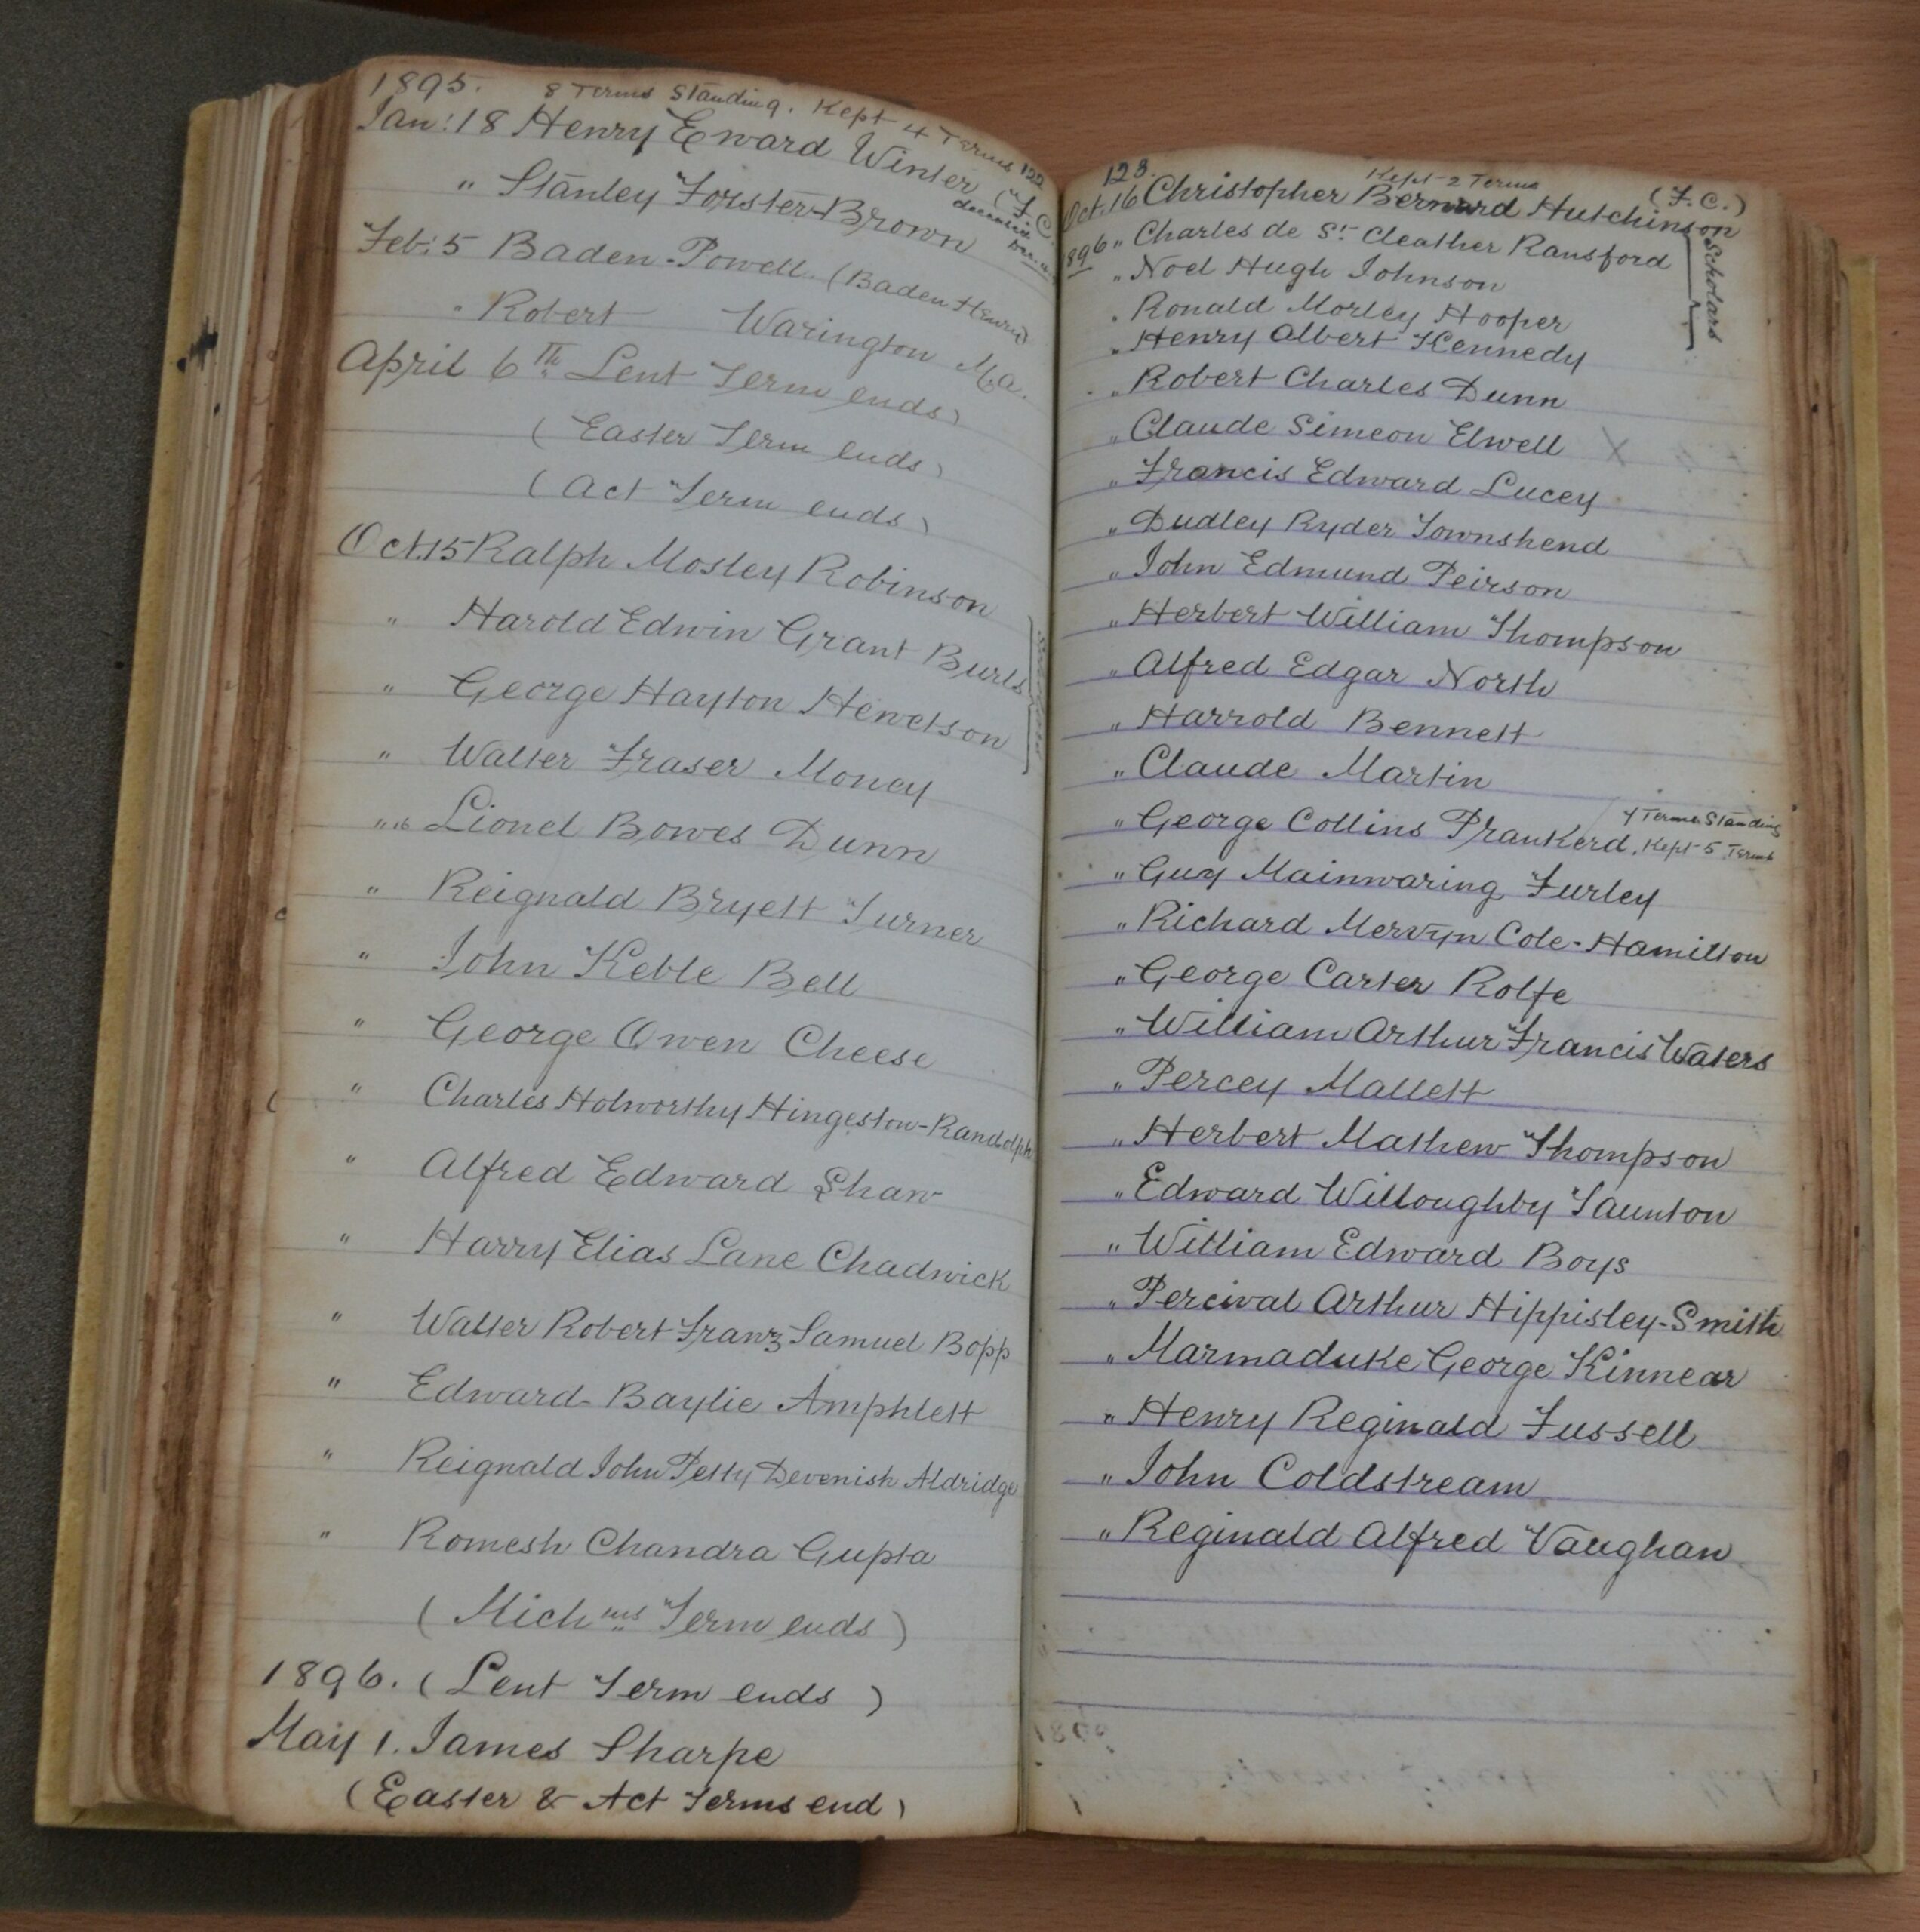 1895. 8 Terms Standing. Kept 4 Terms 122
Jan: 18 Henry Eward Winter (F.C.
deceased Dec.
" Stanley Forster-Brown
Feb: 5 Baden-Powell (Baden Henry)
" Robert Warington M.A.
April 6th Lent Term ends)
(Easter Term ends)
(Act Term ends)
Oct. 15 Ralph Mosley Robinson
" Harold Edwin Grant Burls
" George Hayton Hewetson
Scholars
" Walter Fraser Money
" 16 Lionel Bowes Dunn
" Reignald Bryett Turner
" John Keble Bell
" George Owen Cheese
" Charles Holworthy Hingeston-Randolph
" Alfred Edward Shaw
" Harry Elias Lane Chadwick
" Walter Robert Franz Samuel Bopp
" Edward Baylie Amphlett
" Reignald John Petty Devenish Aldridge
" Romesh Chandra Gupta
(Michms Term ends)
1896. (Lent Term ends)
May 1. James Sharpe
(Easter & Act Terms end)
123. Kept 2 Terms (F.C.)
Oct. 16 Christopher Bernard Hutchinson
896 " Charles de St Cleather Ransford
" Noel Hugh Johnson
" Ronald Morley Hooper
Scholars
" Henry Albert Kennedy
" Robert Charles Dunn
" Claude Simeon Elwell X
" Francis Edward Lucey
" Dudley Ryder Townshend
" John Edmund Peirson
" Herbert William Thompson
" Alfred Edgar North
" Harrold Bennett
" Claude Martin
" George Collins Prankerd. 7 Terms Standing
Kept 5 Terms
" Guy Mainwaring Furley
" Richard Mervyn Cole-Hamilton
" George Carter Rolfe
" William Arthur Francis Waters
" Percey Mallett
" Herbert Mathew Thompson
" Edward Willoughby Taunton
" William Edward Boys
" Percival Arthur Hippisley-Smith
" Marmaduke George Kinnear
" Henry Reginald Fussell
" John Coldstream
" Reginald Alfred Vaughan